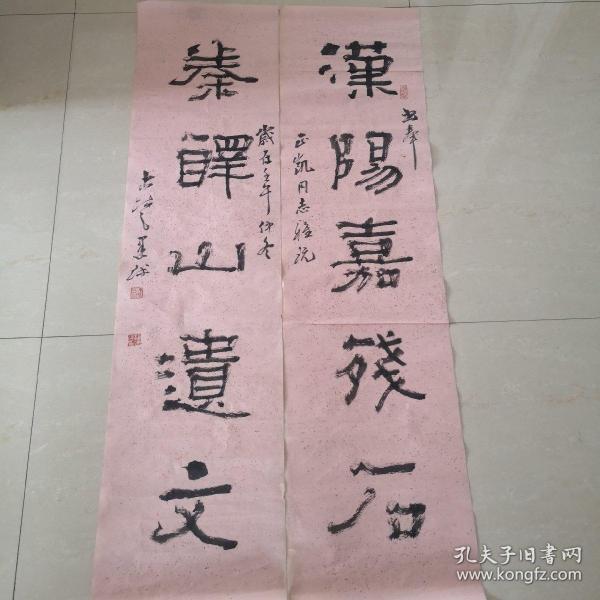 漢陽嘉残石
书奉
正凯同志雅玩
秦嶧山遺文
歲在壬午仲冬
孔夫子旧书网
www.kongfz.com